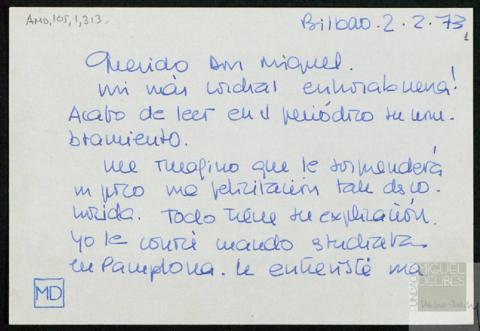 AMD,105,1,313.
Bilbao. 2. 2. 73
1
Querido Don Miguel.
mi más cordial enhorabuena!
Acabo de leer en el periódico su nom-
bramiento.
Me imagino que le sorprenderá
un poco una felicitación tan desco-
nocida. Todo tiene su explicación.
Yo le conocí cuando estudiaba
en Pamplona. le entrevisté una
MD
FUNDACIÓN
MIGUEL
DELIBES